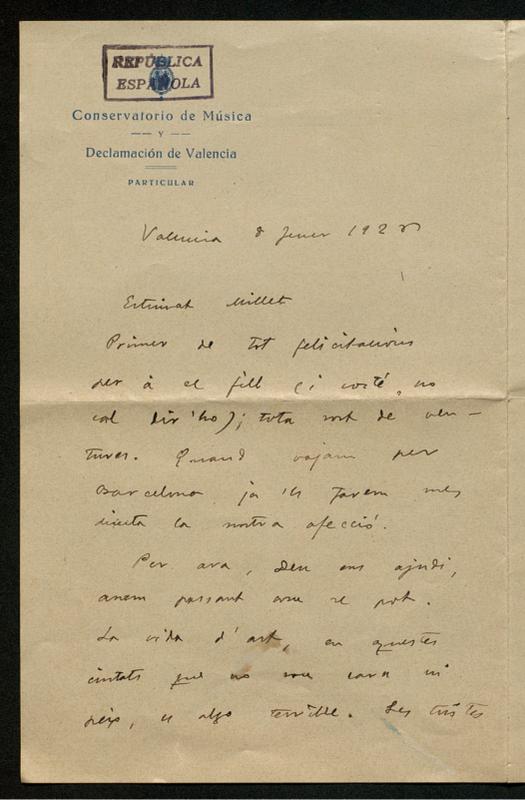 REPÚBLICA
ESPAÑOLA
Conservatorio de Música
Y
Declamación de Valencia
PARTICULAR
Valencia 8 Jener 192
Estimat Millet
Primer de tot felicitacions
per á el fill (i vosté, no
cal dir'ho); tota sort de ven-
tures. Quand vajam per
Barcelona ja 'ls farem mes
la nostra afecció.
Per ara, Deu ens ajudi,
anem passant com se pot.
La vida d'art, en questes
ciutats que no son carn ni
peix, es algo terrible. Les tristes